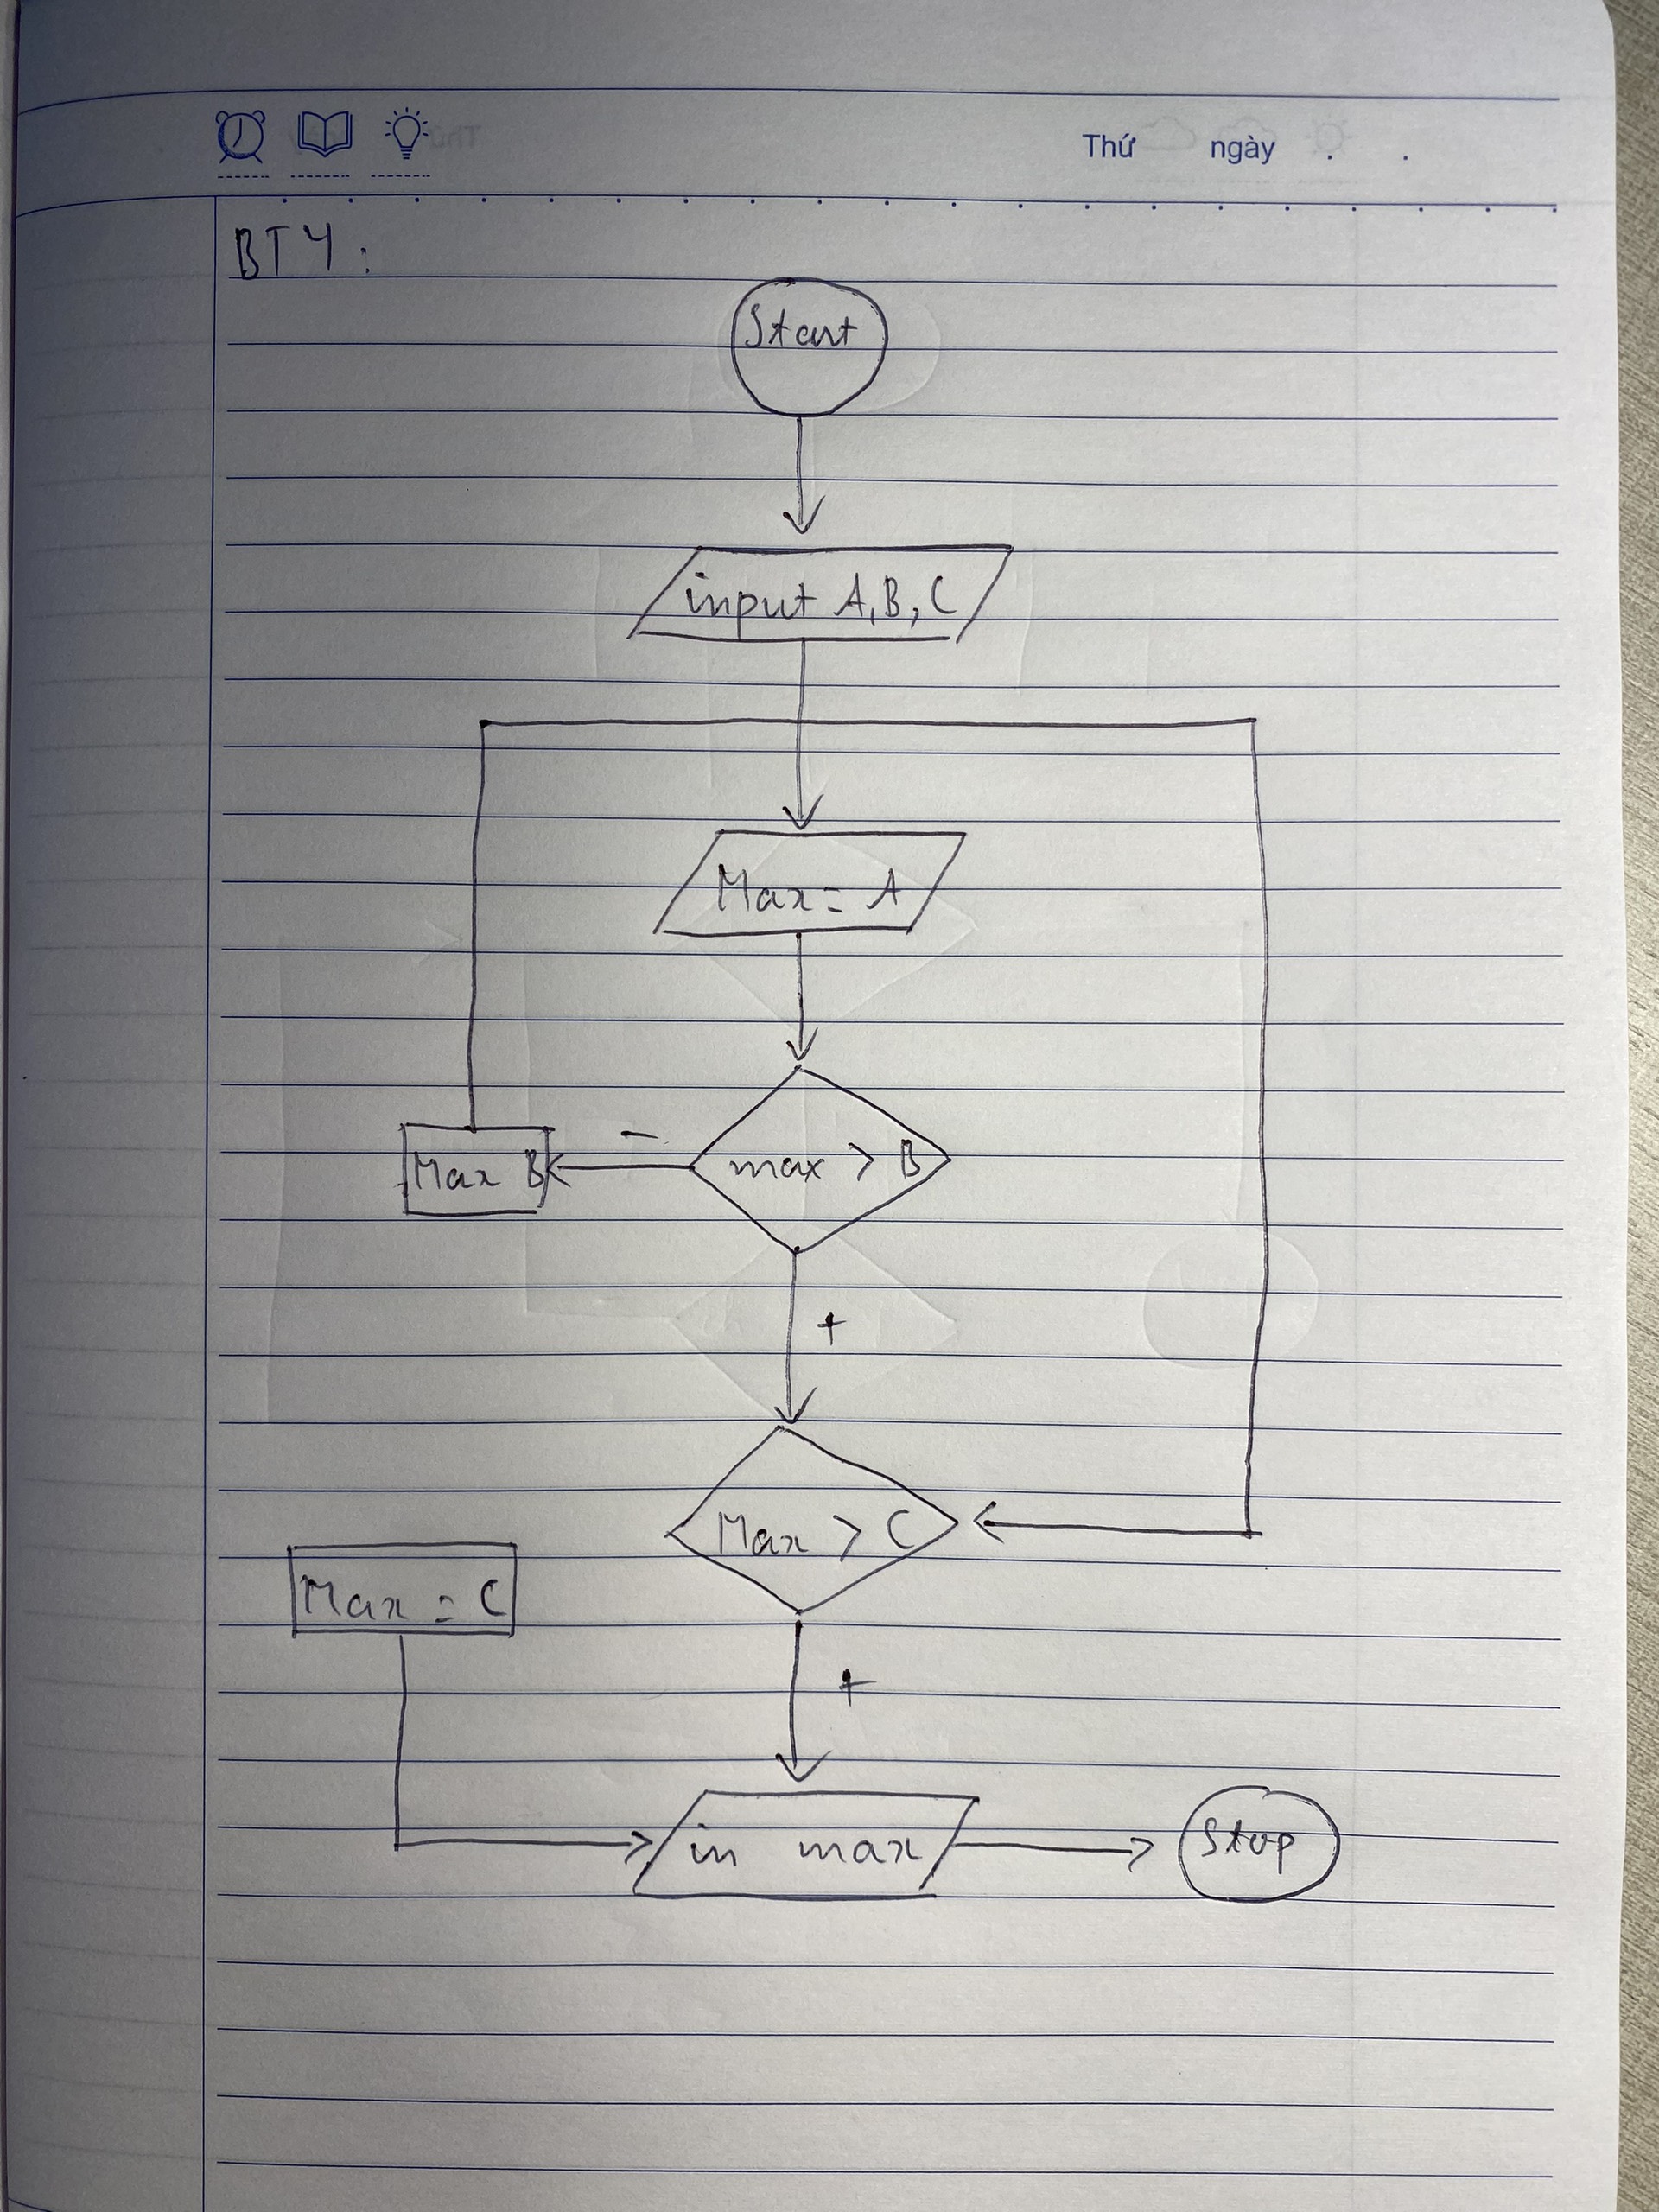 Thứ ngày . .
BT4:
Start
input A, B, C
Max = A
max > B
-
Max B
+
Max > C
Max = C
+
in max
Stop